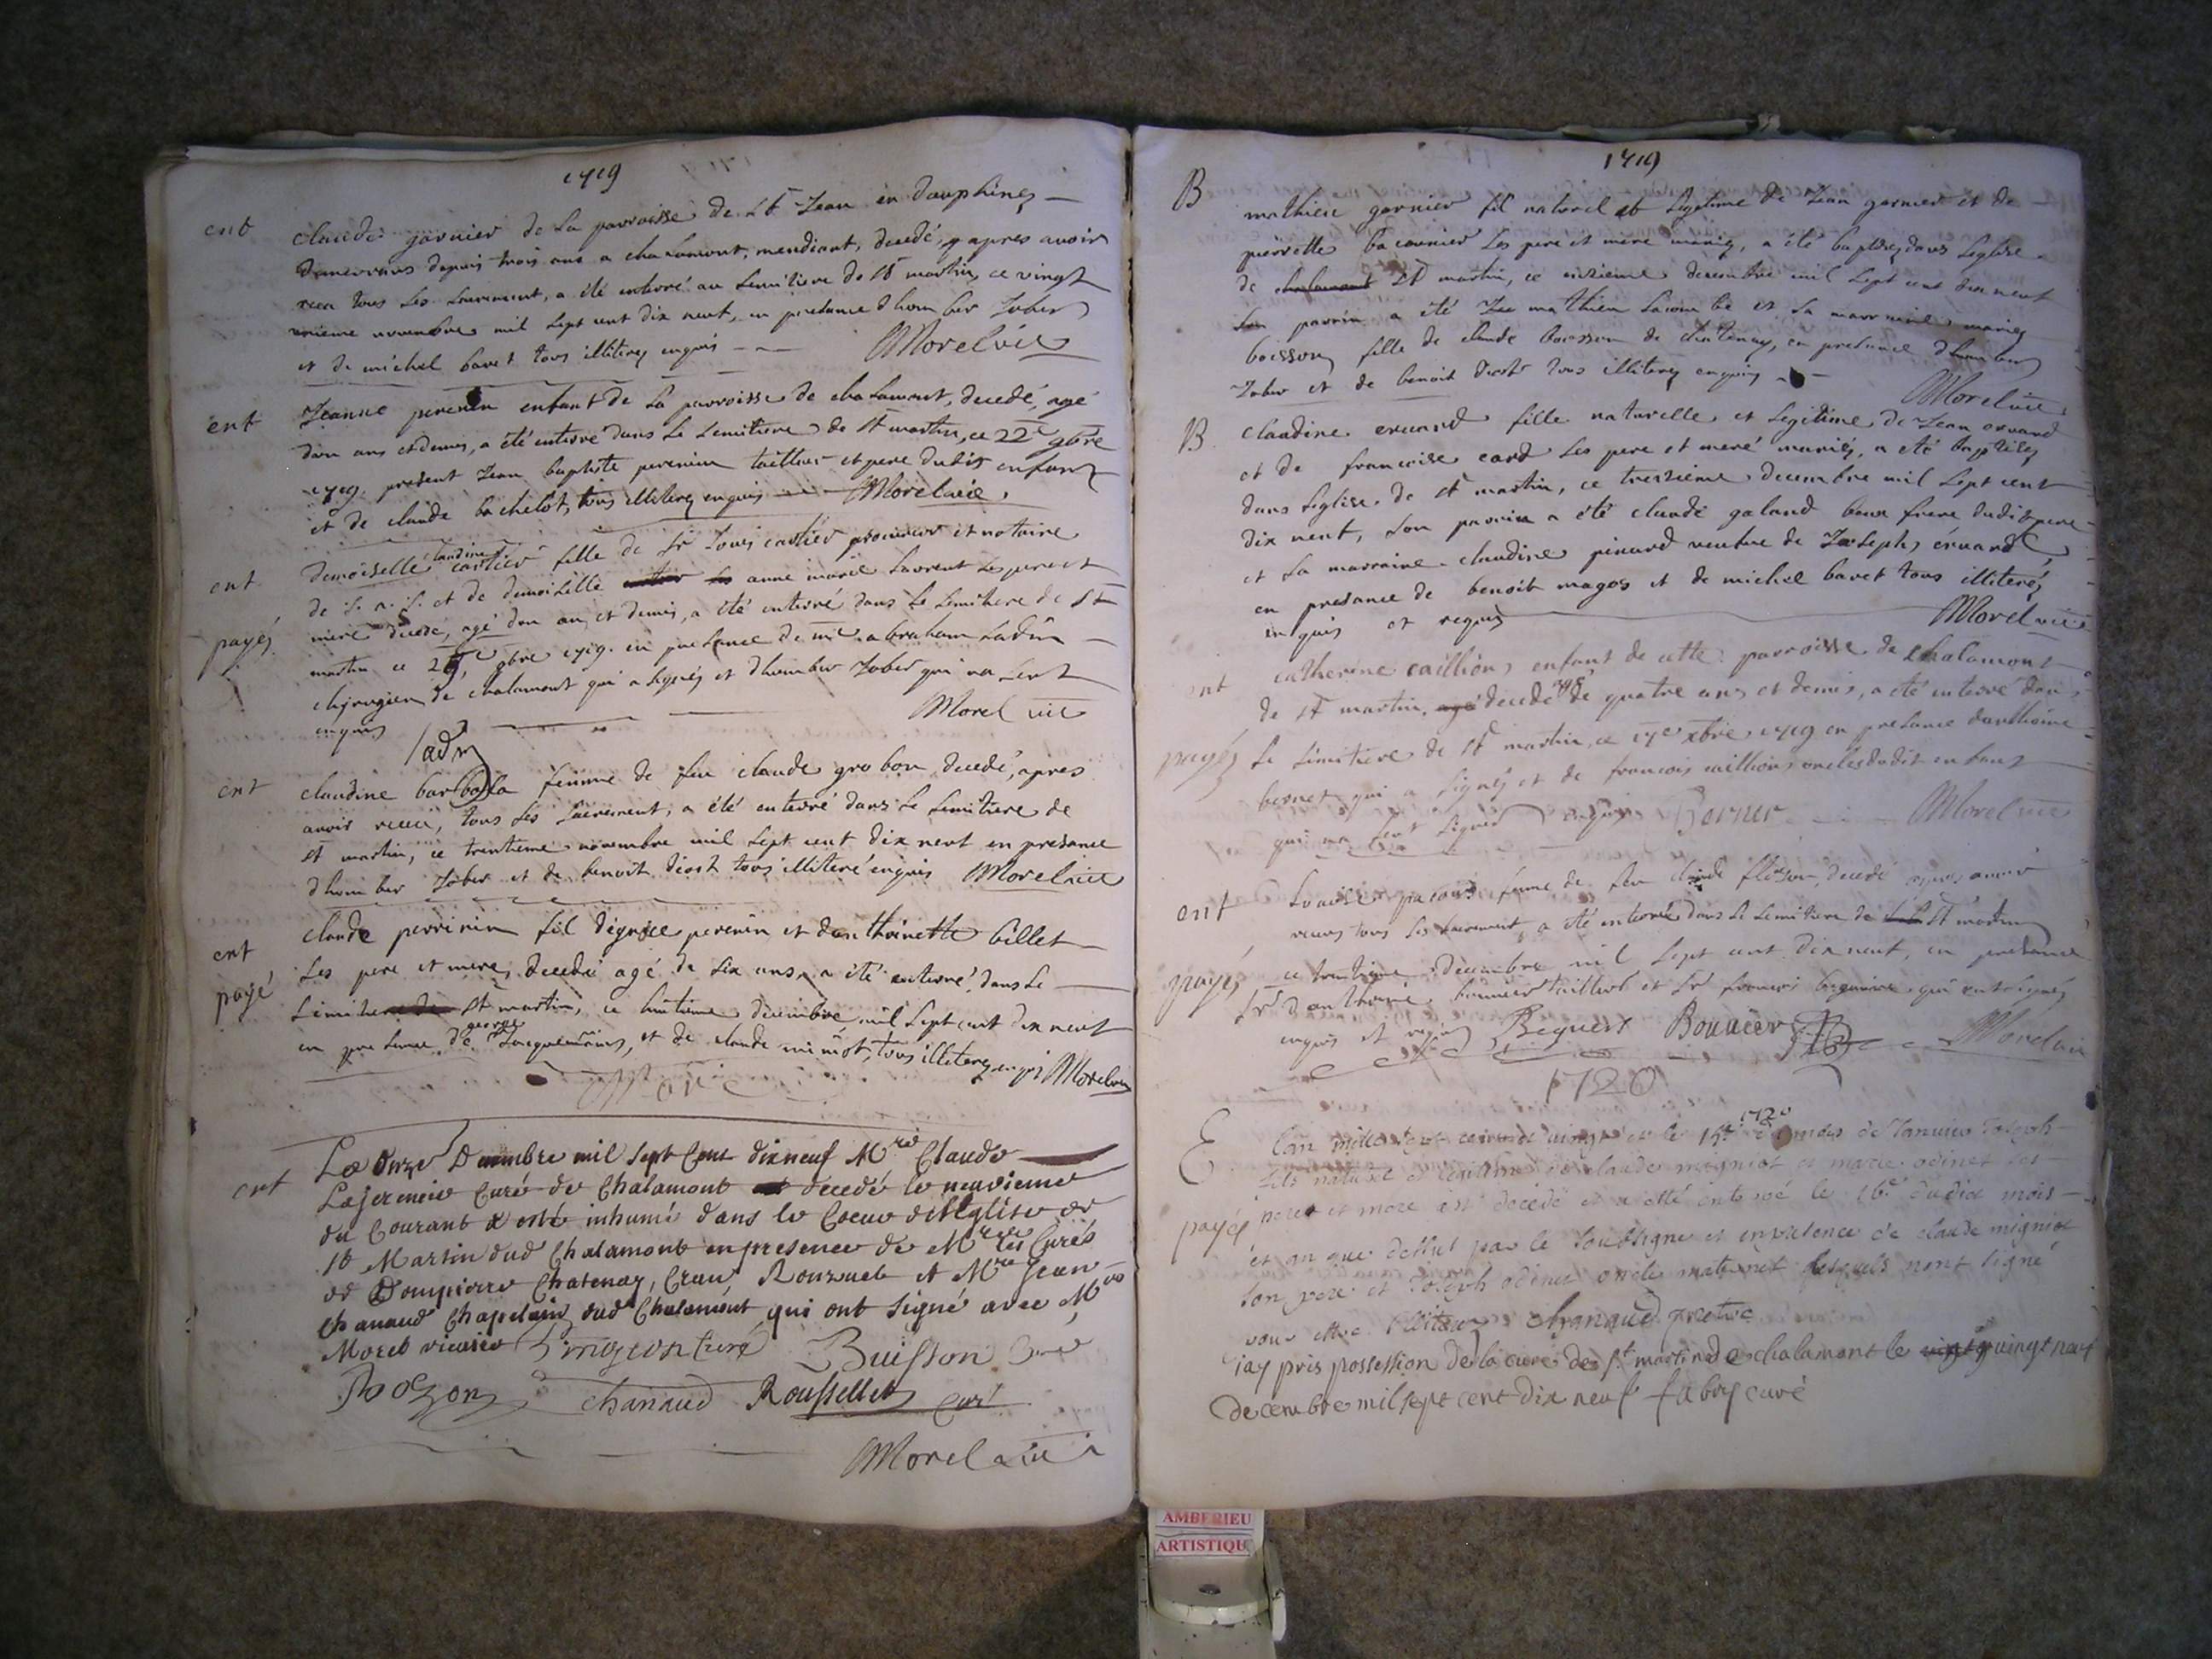 1719
ent claude garnier de la parroisse de st Jean en dauphinez
depuis trois ans a chalamont, mendiant, decedé, apres avoir
receu tous les sacrement, a été enterré au semitiere de st martin, ce vingt
unieme novembre mil sept cent dix neuf, en presance dhumber Jober
et de michel bavet tous illiterez enquis Morel vic
ent Jeanne perenin enfant de la parroisse de chalamont, decedé, agé
dun ans et demis, a été enterré dans le semitiere de st martin, ce 22e 9bre
1719. present Jean baptiste perenin tailleur et pere dudit enfant
et de claude bachelot, tous illiterez enquis Morel vic
ent demoiselle claudine cartier fille de sr Louis cartier procureur et notaire
de et de demoiselle anne marie laurent les pere et
payéz mere decedé, agé dun an et demis, a été enterré dans le semitiere de st
martin ce 9bre 1719. en presance de me abraham ladin
chirurgien de chalamont qui a signéz et dhumber Jober qui na seut
enquis Morel vic
ladin
ent claudine barbolla femme de feu claude grobon decedé, apres
avoir receu, tous les sacrement, a été enterré dans le semitiere de
st martin, ce trentieme novembre mil sept cent dix neuf en presance
dhumber Jober et de benoit diost tous illiteré enquis Morel vic
ent claude perrinin fil perenin et danthoinette billet
payé les pere et mere, decedé agé de six ans, a été enterré dans le
semitiere de st martin, ce huitieme decembre mil sept cent dix neuf
en presance de george Jacquemain, et de claude mimot, tous illiterez enquis Morel vic
ent Le Onze Decembre mil sept Cent dix neuf Mre Claude
Curé de Chalamont decedé le neuvieme
du Courant a esté inhumé dans le Coeur de l'Eglise de
St Martin dud Chalamont en presence de Mre les Curés
de Dompierre Chatenay, Cran, Ronzuel et Mre Jean
chanaud Chapelain dud Chalamont qui ont signé avec Mre
Morel vicaire curé Buisson
Bozon chanaud Rousselet curé
Morel vic
1719
B mathieu garnier fil naturel et legitime de Jean garnier et de
pierrette baconnier les pere et mere mariez, a été baptisez dans leglise
de chalamont st martin, ce onzieme decembre mil sept cent dix neuf
son parrin a été mathieu lacombe et la marraine mariez
boisson fille de claude boisson de chatenay, en presance dhumber
Jober et de benoit diost tous illiterez enquis Morel vic
B claudine fille naturelle et legitime de Jean
et de francoise card les pere et mere mariéz, a été baptisez
dans leglise de st martin, ce treizieme decembre mil sept cent
dix neuf, son parrin a été claude galand beau frere dudit pere
et la marraine claudine pinard veufve de Joseph
en presance de benoit magos et de michel bavet tous illiteréz
enquis et requis Morel vic
ent catherine caillion enfant de cette parroisse de chalamont
de st martin, agé decedé agé de quatre ans et demis, a été enterré dans
payéz le semitiere de st martin, ce 17e xbre 1719 en presance danthoine
bernet qui a signéz et de francois caillion oncles dudit enfant
qui na seut signer enquis Morel vic
ent femme de feu claude decedé apres avoir
receus tous les sacrement, a été enterré dans le semitiere de st martin
payéz ce trentieme decembre mil sept cent dix neuf, en presance
sr danthoine bouvier tailleur et sr francois qui ont signéz
enquis et requis Beguers Bouvier Morel vic
1720
E Lan mille sept cent vingt et le 15e du mois de Janvier Joseph 1720
fils naturel et legitime de claude migniot et marie odinet ses
payés pere et mere est decedé et a esté enterré le 16e dudit mois
et an que dessus par le soubsigné et en presence de claude migniot
son pere et Joseph odinet oncle maternel lesquels nont signé
pour estre illiterez chanaud pretre
iay pris possession de la cure de st martin de chalamont le vingt neuf
decembre mil sept cent dix neuf fabry curé
AMBERIEU
ARTISTIQU